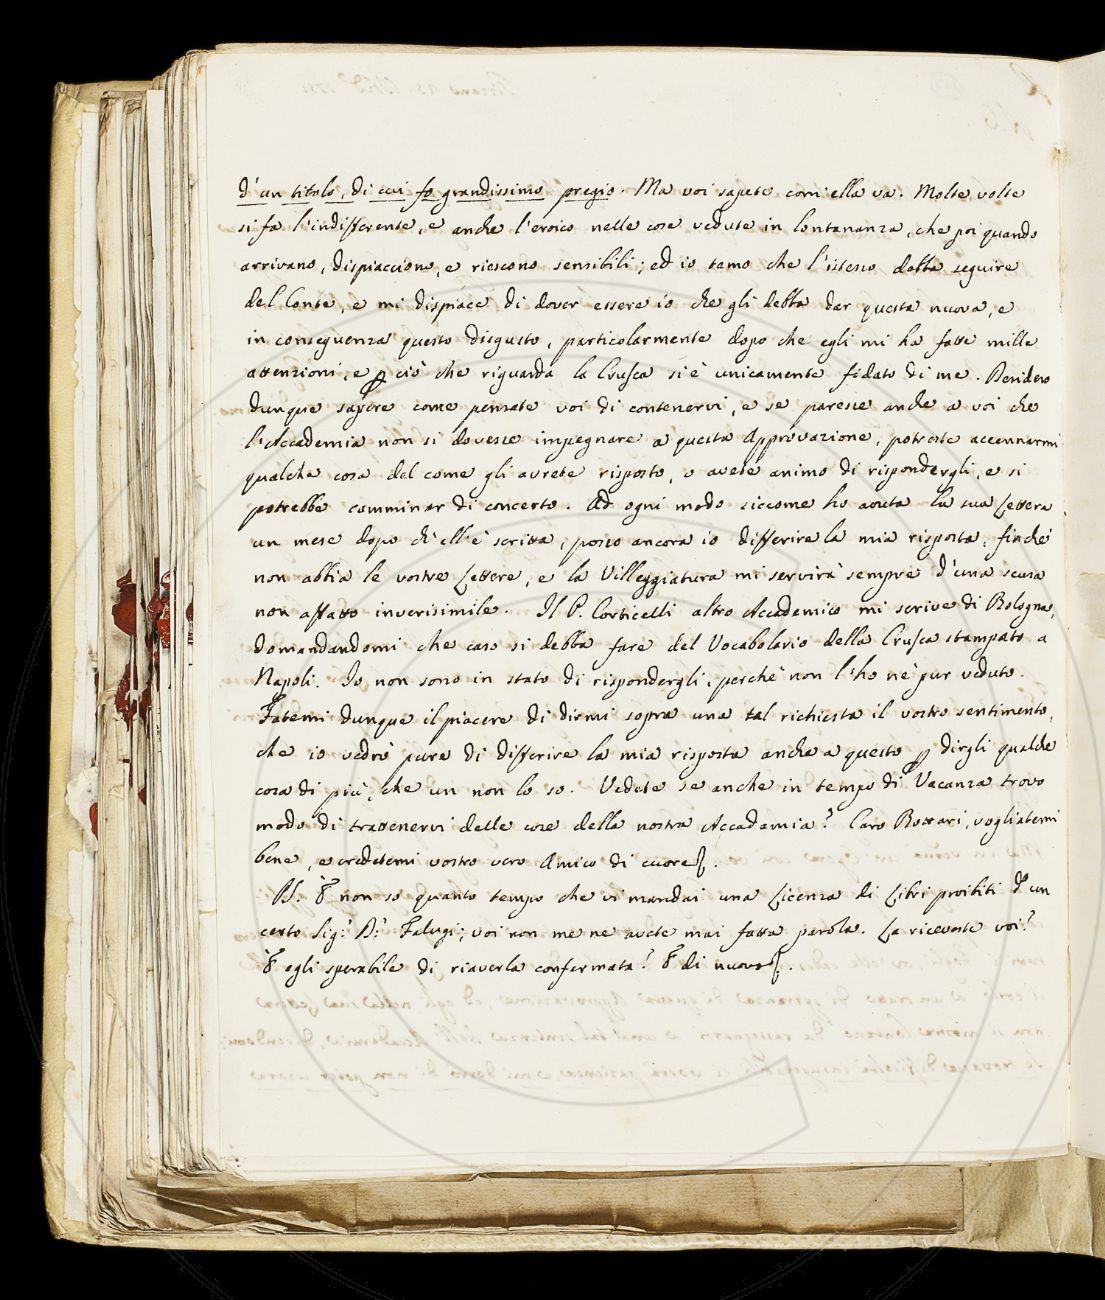 d'un titolo, di cui fo grandissimo pregio. Ma voi sapete com'ella va. Molte volte
si fa l'indifferente, e anche l'eroico nelle cose vedute in lontananza, che poi quando
arrivano, dispiacciono, e riescono sensibili; ed io temo che l'istesso debba seguire
del Conte, e mi dispiace di dover essere io che gli debba dar questa nuova, e
in conseguenza questo disgusto, particolarmente dopo che egli mi ha fatte mille
attenzioni, e p ciò che riguarda la Crusca si è unicamente fidato di me. Desidero
dunque sapere come pensate voi di contenervi, e se paresse anche a voi che
l'Accademia non si dovesse impegnare a questa Approvazione, potreste accennarmi
qualche cosa del come gli avrete risposto, o avete animo di rispondergli, e si
potrebbe camminar di concerto. Ad ogni modo siccome ho avuta la sua Lettera
un mese dopo ch'ell'è scritta, posso ancora io differire la mia risposta, finchè
non abbia le vostre Lettere, e la Villeggiatura mi servirà sempre d'una scusa
non affatto inverisimile. Il P. Corticelli altro Accademico mi scrive di Bologna,
domandandomi che caso si debba fare del Vocabolario della Crusca stampato a
Napoli. Io non sono in stato di rispondergli, perchè non l'ho nè pur veduto.
Fatemi dunque il piacere di dirmi sopra una tal richiesta il vostro sentimento,
che io vedrò pure di differire la mia risposta anche a questo p dirgli qualche
cosa di più, che un non lo so. Vedete se anche in tempo di Vacanza trovo
modo di trattenervi delle cose della nostra Accademia? Caro Bottari, vogliatemi
bene, e credetemi vostro vero Amico di cuore.
PS. È non so quanto tempo che vi mandai una Licenza di Libri proibiti d'un
certo Sig.r D.r Falugi; voi non me ne avete mai fatta parola. La riceveste voi?
È egli sperabile di riaverla confermata? E di nuovo.